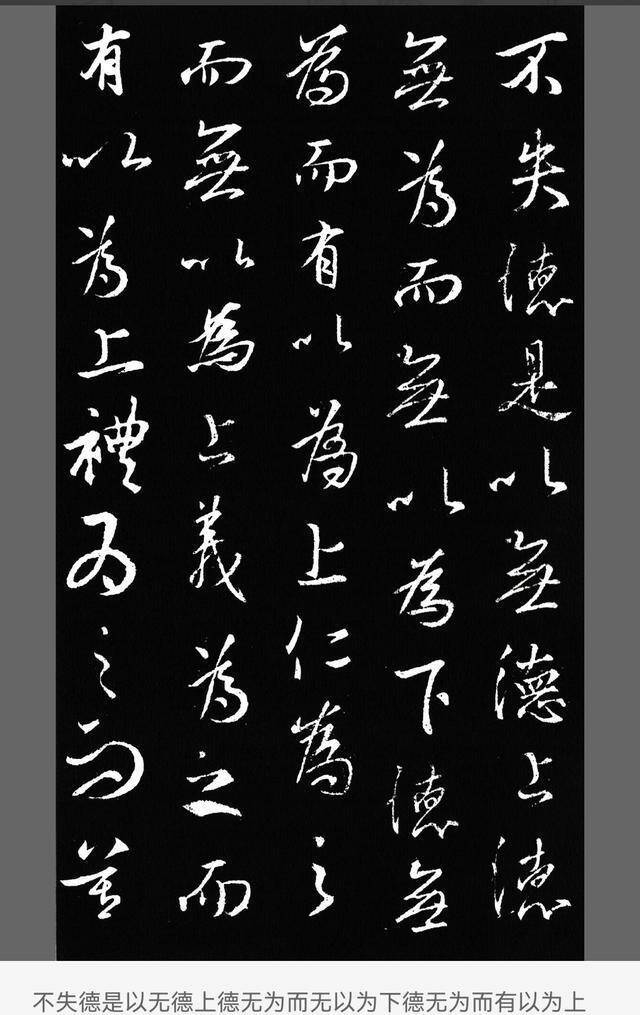 不失德是以無德上德
無為而無以為下德無
為而有以為上仁為之
而無以為上義為之而
有以為上禮為之而莫
不失德是以无德上德无为而无以为下德无为而有以为上